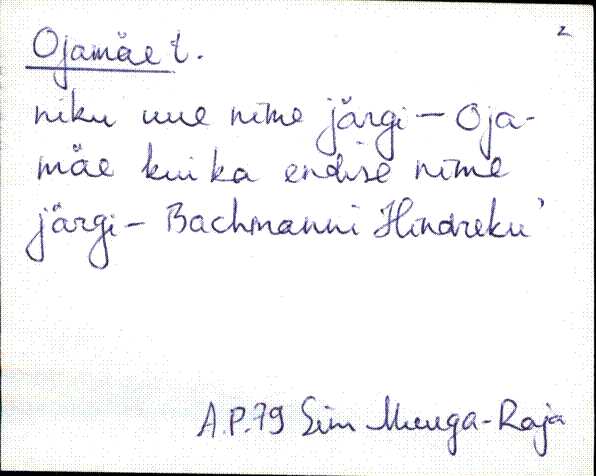 2
Ojamäe t.
niku uue nime järgi - Oja-
mäe kui ka endise nime
järgi - Bachmanni Hindreku'
A.P.79 Sim Muuga-Raja